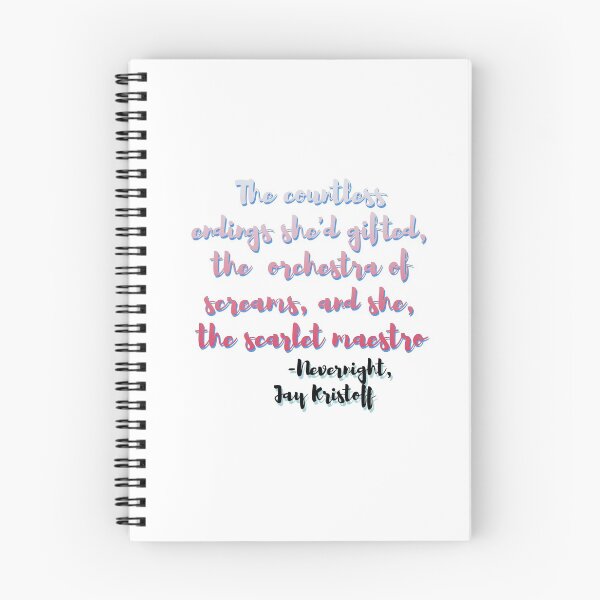 The countless
endings she'd gifted,
the orchestra of
screams, and she,
the scarlet maestro
-Nevernight,
Jay Kristoff